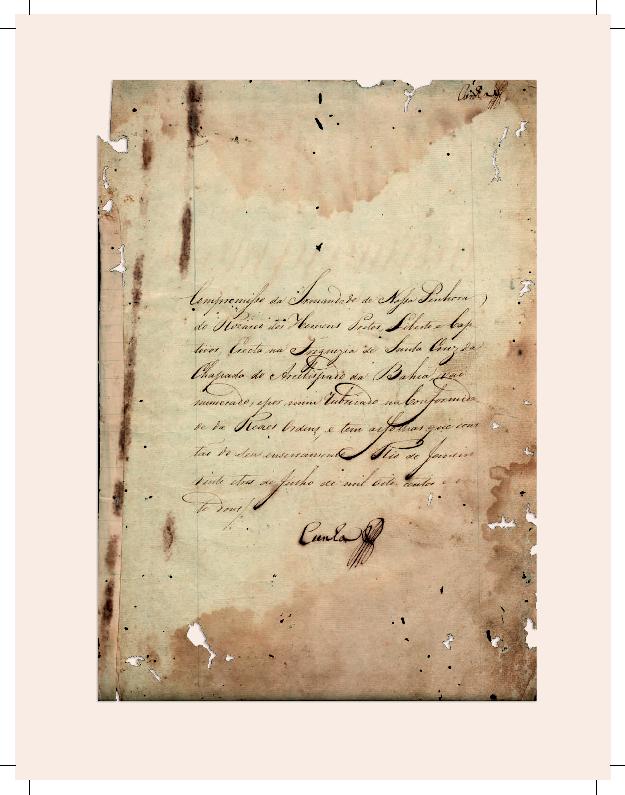 Compromisso da Irmandade de Nossa Senhora
do Rozario dos Homens Pretos, Liberto e Cap-
tivos, Erecta na Freguezia de Santa Cruz da
Chapada do Arcebispado da Bahia, vai
numerado, e por mim Rubricado na Conformida-
de da Reaes Ordens, e tem as folhas que cons-
tão do seu enserramento Rio de Janeiro
vinte e tres de Julho de mil oito centos e
te dous
Cunha